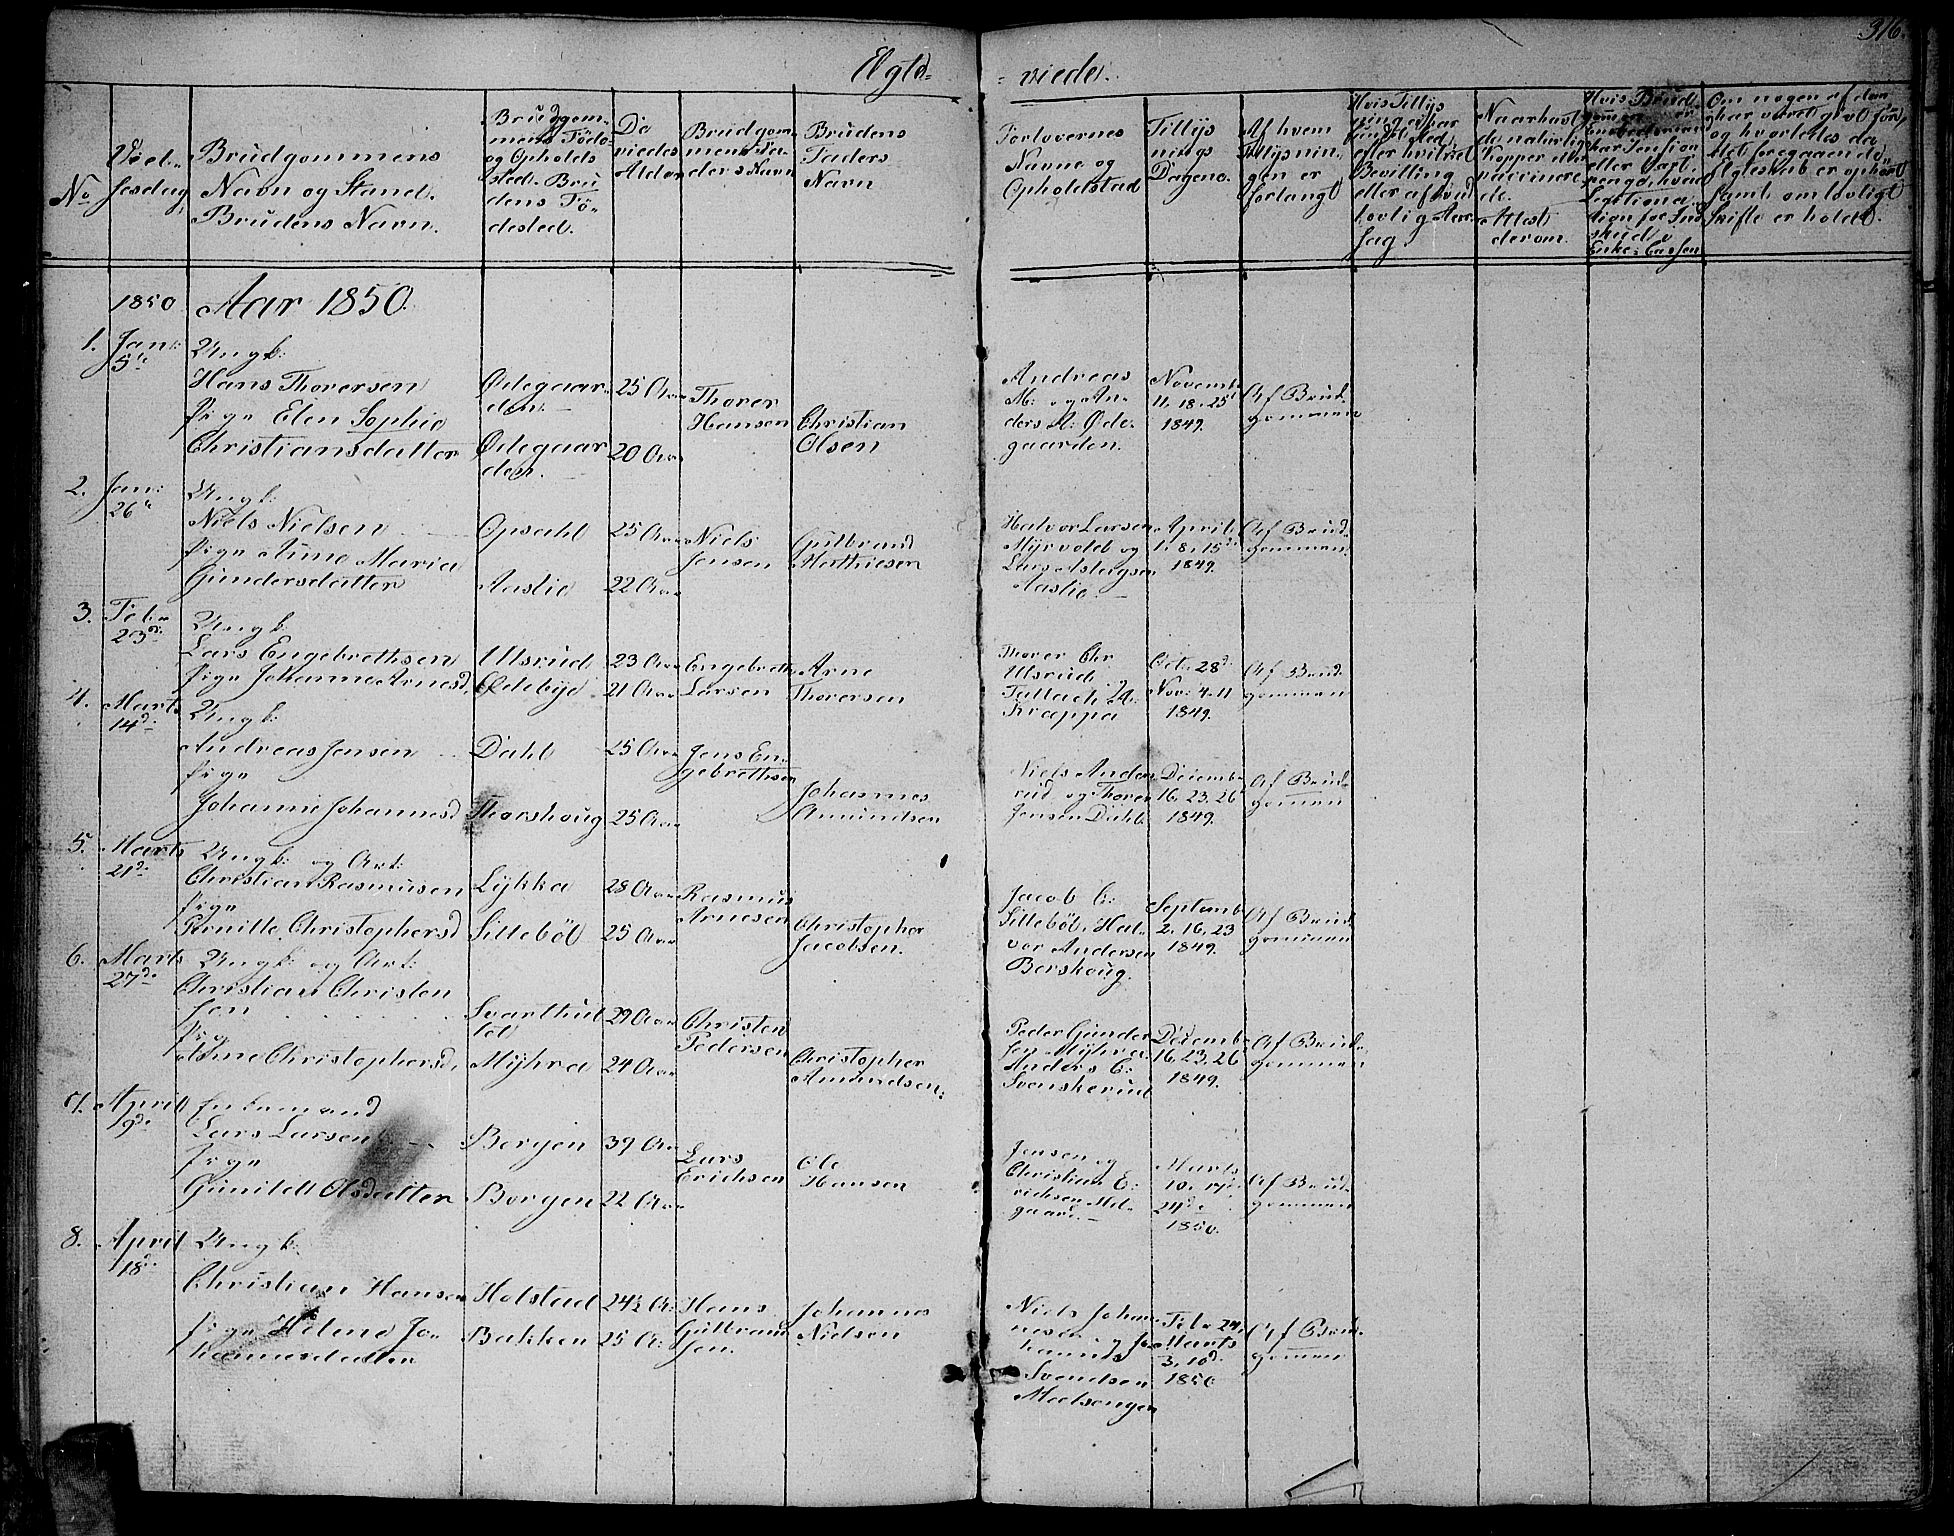 316.
Egte= =viede.
No
Viel-
sesdag
Brudgommens
Navn og Stand.
Brudens Navn.
Brudgom-
mens Føde
og Opholds
sted. Bru
dens Fø-
dested.
De
viedes
Alder
Brudgom-
mens Fa-
ders Navn
Brudens
Faders
Navn
Forlovernes
Navne og
Opholdsted
Tillys
nings
Dagene.
Af hvem
Tillysnin-
gen er
forlangt
Hvis Tillys
ning ei har
fundet sted,
efter hvilket
Bevilling
eller af hvad
lovlig Aar-
sag
Naar havt
de naturlige
Kopper eller
vaccinere
de.
Attest
derom.
Hvis Brud-
gommen er
Embedsmand
har Pension
eller Vart-
penge, hvad
Legitima-
tion for Ind
skud i
Enke-Cassen
Om nogen af dem
har været givt før,
og hvorledes da
det foregaaende
Ægteskab er ophørt
samt om lovligt
skifte er holdt.
1850 Aar 1850.
1. Jan:
5te
Ungk:
Hans Thorersen
Pige Elen Sophie
Christiansdatter
Ødegaar-
den.
Ødegaar
den.
25 Aar
20 Aar
Thorer
Hansen
Christian
Olsen
Andreas
M: og An-
ders A: Øde-
gaarden.
Novemb.
11. 18. 25d
1849.
Af Brud-
gommen
2. Jan:
26de
Ungk:
Niels Nielsen
Pige Anne Maria
Gundersdatter
Opsahl
Aaslie
25 Aar
22 Aar
Niels
Jensen
Gulbrand
Mathiesen
Halvor Larsen
Myrvold og
Lars
Aaslie.
April
1. 8. 15d
1849.
Af Brud-
gommen.
3. Feb.
23d
Ungk.
Lars Engebrethsen
Pige Johanne Arnesd.
Ulsrud
Ødebye
23 Aar
21 Aar
Engebreth
Larsen
Arne
Thorersen
Thorer Chr
Ulsrud
Tallach A:
Knappa
Oct. 28d
Nov: 4. 11
1849.
Af Brud-
gommen
4. Marts
14d
Ungk:
Andreas Jensen
Pige
Johanne Johannesd
Dahl
Thorshoug
25 Aar
25 Aar
Jens En
gebrethsen
Johannes
Amundsen
Niels Anden
rud og Thorer
Jensen Dahl.
Decemb
16. 23. 26
1849.
Af Brud-
gommen
5. Marts
21d
Ungk: og Art:
Christian Rasmusen
Pige
Pernille Christophersd
Lykka
Sillebøl
28 Aar
25 Aar
Rasmus
Arnesen
Christopher
Jacobsen.
Jacob C:
Sillebøl. Hal-
vor Andersen
Bershoug.
Septemb
2. 16. 23
1849.
Af Brud-
gommen
6. Marts
27d
Ungk: og Art:
Christian Christen
sen
Pige
Anne Christophersd.
Svarthul
løl
Myhra
29 Aar
24 Aar
Christen
Pedersen
Christopher
Amundsen.
Peder Gunder
sen Myhra.
Anders E:
Svenskerud
Decemb
16. 23. 26
1849.
Af Brud-
gommen
7. April
19d
Enkemand
Lars Larsen
Pige
Gunild Olsdatter
Bergen
Borgen
39 Aar
22 Aar
Lars
Erichsen
Ole
Hansen
Jensen og
Christian E-
richsen Mel-
gaard.
Marts
10. 17d
24d
1850.
Af Brud-
gommen
8. April
18d
Ungk:
Christian Hansen
Pige Helene Jo-
hannesdatter
Holstad
Bakken
24½ A:
25 A:
Hans
Gulbrand
sen.
Johannes
Nielsen
Niels Johan-
nesen
Svendsen
Melsengen
Feb. 24.
Marts
3. 10d
1850
Af Brud-
gommen